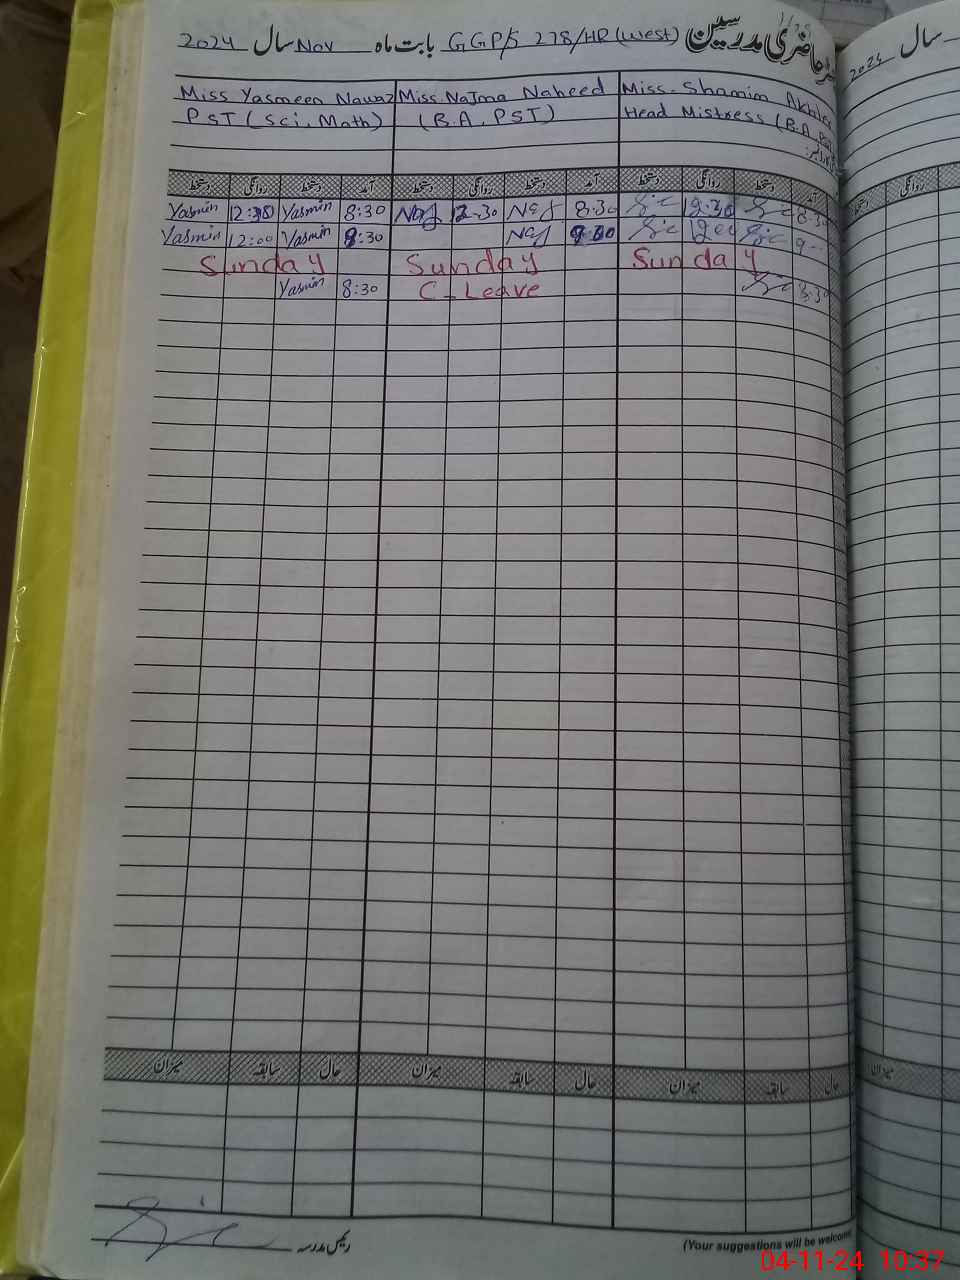 حاضری مدرسین GGP/S 278/HR (West) بابت ماہ Nov سال 2024
سال 2024
Miss. Shamim
Head Mistress (B.A,
Miss. Najma Naheed
(B.A, PST)
Miss Yasmeen Nawaz
PST (Sci, Math)
آمد دستخط روانگی دستخط آمد دستخط روانگی دستخط آمد دستخط روانگی دستخط
روانگی دستخط
8:30 12:30 8:30 Naj 12:30 Naj 8:30 Yasmin 12:30 Yasmin
9 Naj 8:30 Yasmin 12:00 Yasmin
Sunday Sunday Sunday
8:30 C-Leave 8:30 Yasmin
حال سابقہ میزان حال سابقہ میزان حال سابقہ میزان
میزان
رئیس مدرسہ
(Your suggestions will be welcome
04-11-24 10:37